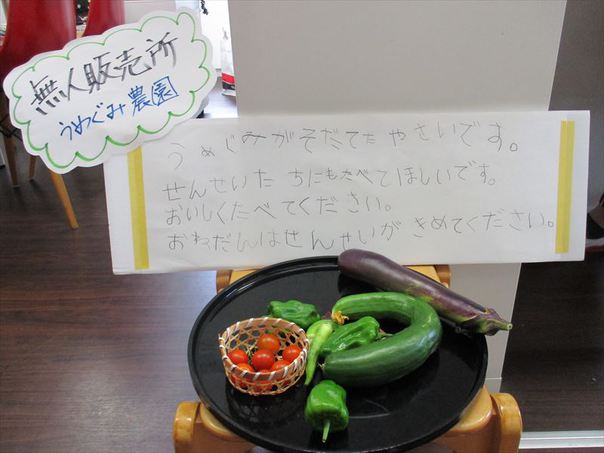 無人販売所
うめぐみ農園
うめぐみがそだてた やさいです。
せんせいたちにもたべてほしいです。
おいしくたべてください。
おねだんはせんせいが きめてください。